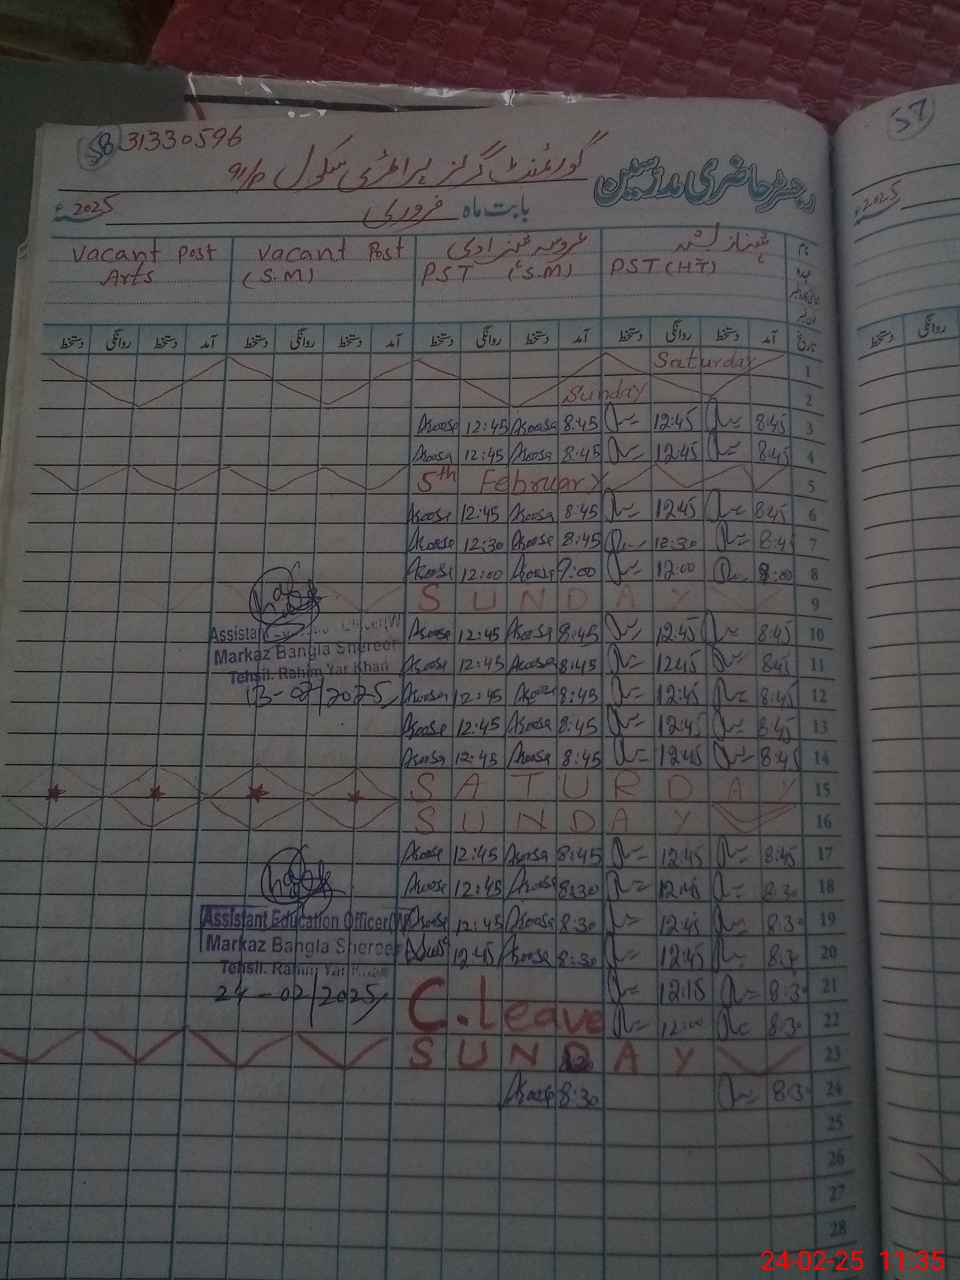 57
58 31330596
گورنمنٹ گرلز پرائمری سکول 91/P رجسٹر حاضری مدرسین
بابت ماہ فروری 2025ء
2025
Vacant Post Vacant Post شہناز نام
Arts (S.M) PST (S.M) PST (HT) عہدہ
دستخط روانگی دستخط آمد دستخط روانگی دستخط آمد دستخط روانگی دستخط آمد دستخط روانگی دستخط آمد تاریخ
دستخط روانگی
Saturday 1
Sunday 2
Aroosa 12:45 Aroosa 8:45 12:45 8:45 3
Aroosa 12:45 Aroosa 8:45 12:45 8:45 4
5th February 5
Aroosa 12:45 Aroosa 8:45 12:45 8:45 6
Aroosa 12:30 Aroosa 8:45 12:30 8:45 7
Aroosa 12:00 Aroosa 9:00 12:00 9:00 8
SUNDAY 9
Aroosa 12:45 Aroosa 8:45 12:45 8:45 10
Aroosa 12:45 Aroosa 8:45 12:45 8:45 11
Aroosa 12:45 Aroosa 8:45 12:45 8:45 12
Aroosa 12:45 Aroosa 8:45 12:45 8:45 13
Aroosa 12:45 Aroosa 8:45 12:45 8:45 14
SATURDAY 15
SUNDAY 16
Aroosa 12:45 Aroosa 8:45 12:45 8:45 17
Aroosa 12:45 Aroosa 8:30 12:45 8:30 18
Aroosa 12:45 Aroosa 8:30 12:45 8:30 19
Aroosa 12:45 Aroosa 8:30 12:45 8:3 20
12:15 8:30 21
C.leave 12:00 8:30 22
SUNDAY 23
Aroosa 8:30 8:30 24
25
26
27
28
Assistant
Markaz Bangla Shereef
Tehsil. Rahim Yar Khan
13-02/2025
Assistant Education Officer(W)
Markaz Bangla Shereef
Tehsil. Rahim Yar Khan
24-02/2025
24-02-25 11:35